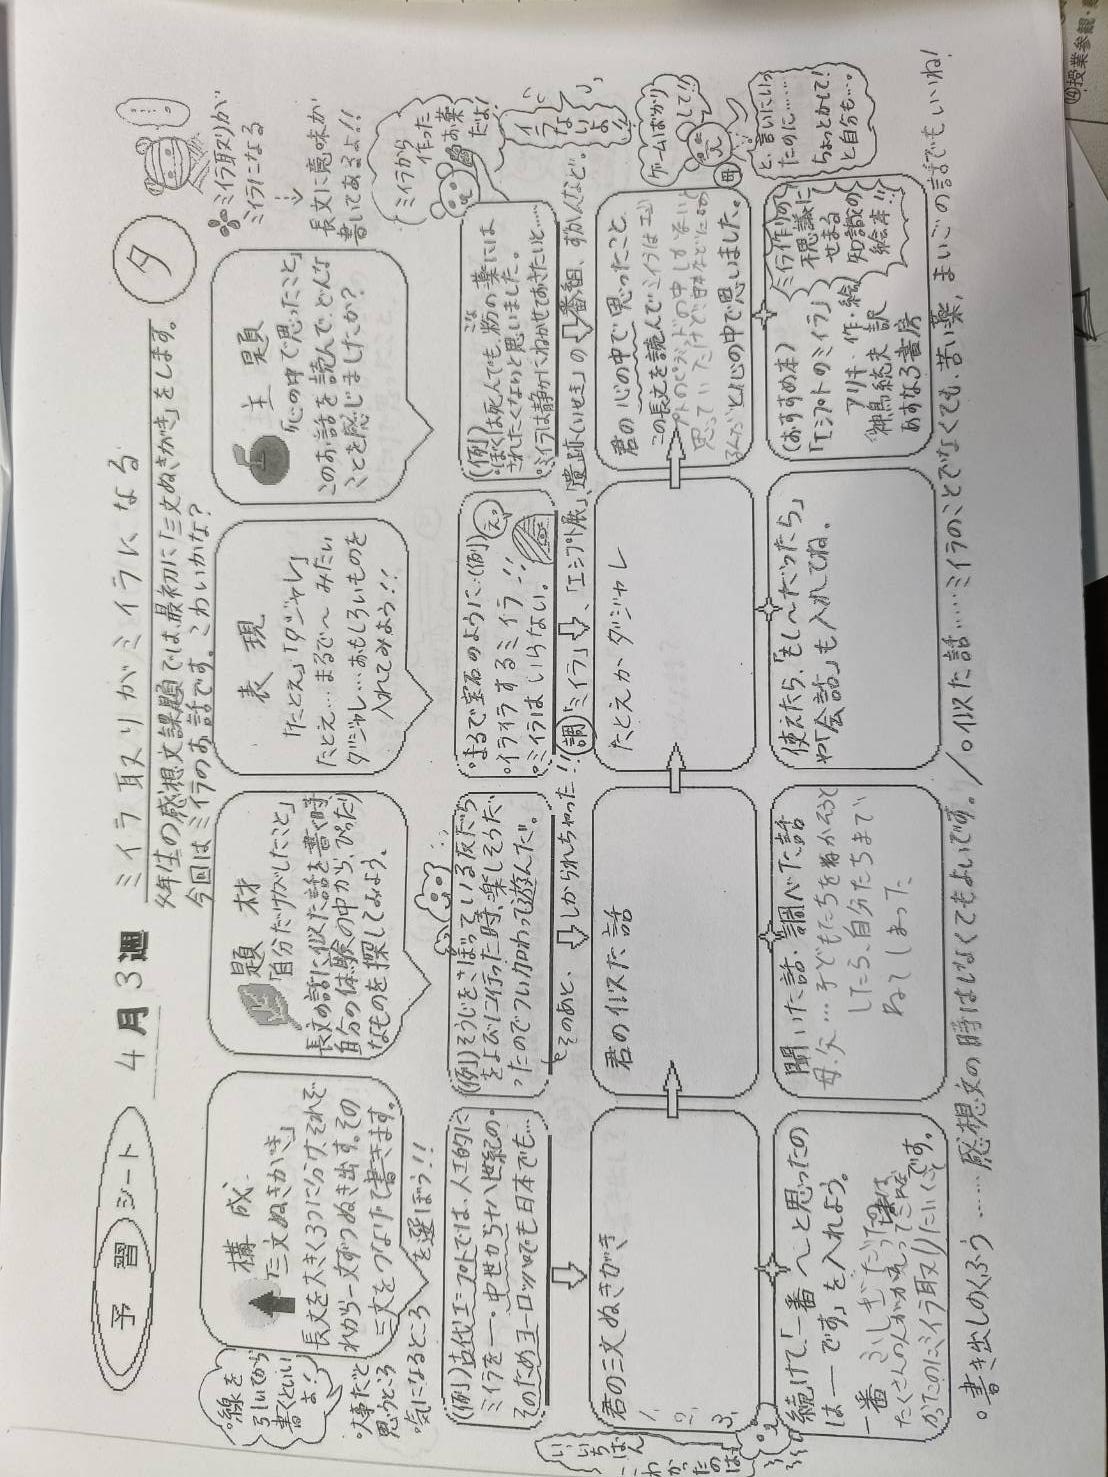 予習シート 4月3週 ミイラ取りがミイラになる
タ
年生の感想文課題では、最初に「三文ぬきがき」をします。
今回はミイラのお話です。こわいかな?
ミイラ取りが
ミイラになる
↓
長文に意味が
書いてあるよ!!
構成
「三文ぬきがき」
長文を大きく3つに分け、それぞ
れから一文ずつぬき出す。その
三文をつなげて書きます。
線を
引いてから
書くといい
よ!
大事だと
思うところ
気になるところ
を選ぼう!!
題材
「自分だけがしたこと」
長文の話に似た話を書く時
自分の体験の中から、ぴったり
なものを探してみよう。
表現
「たとえ」「ダジャレ」
たとえ…まるで〜みたい
ダジャレ…おもしろいものを
入れてみよう!!
主題
「心の中で思ったこと」
このお話を読んで、どんな
ことを感じましたか?
ミイラから
作った
お薬
だよ!
(例)古代エジプトでは、人工的に
ミイラを――。中世から十八世紀の。
そのためヨーロッパでも日本でも…
(例)そうじをさぼっている友だち
をよびに行った時、楽しそうだ
ったのでつい加わって遊んだ。
そのあと、⇨しかられちゃった!!
。まるで宝石のように…(例)
えっ
。イライラするミイラ…!!
。ミイラはいらない。
(例)
ぼくは死んでも、粉の薬には
こな
されたくないと思いました。
。ミイラは静かにねかせておきたいと……
調「ミイラ」⇨、「エジプト展」、「遺跡(いせき)」の⇨番組、ずかんなど。
君の三文ぬきがき
1、
2、
3、
君の似た話
たとえか ダジャレ
君の心の中で思ったこと、
この長文を読んでミイラはエジ
プトのピラミッドの中しかないと
思っていたけど日本などにもある
と心の中で思いました。
ゲームばかり
して!!
母
と、言いにいっ
たのに……
ちょっとかして!
と自分も…。
続けて、「一番〜と思ったの
は――です」を入れよう。
聞いた話、調べた話
母、父…子どもたちをねかそうと
したら、自分たちまで
ねてしまった
使えたら、「もし〜だったら」
や「会話」も入れてね。
(おすすめ本)
「エジプトのミイラ」
アリキ・作・絵
神鳥統夫 訳
あすなろ書房
ミイラ作りの
不思議に
せまる
知識の
絵本!!
。書き出しのくふう……感想文の時はしなくてもよいです。/。似た話……ミイラのことでなくても、苦い薬、まいごの話でもいいね!
⑭授業参観・